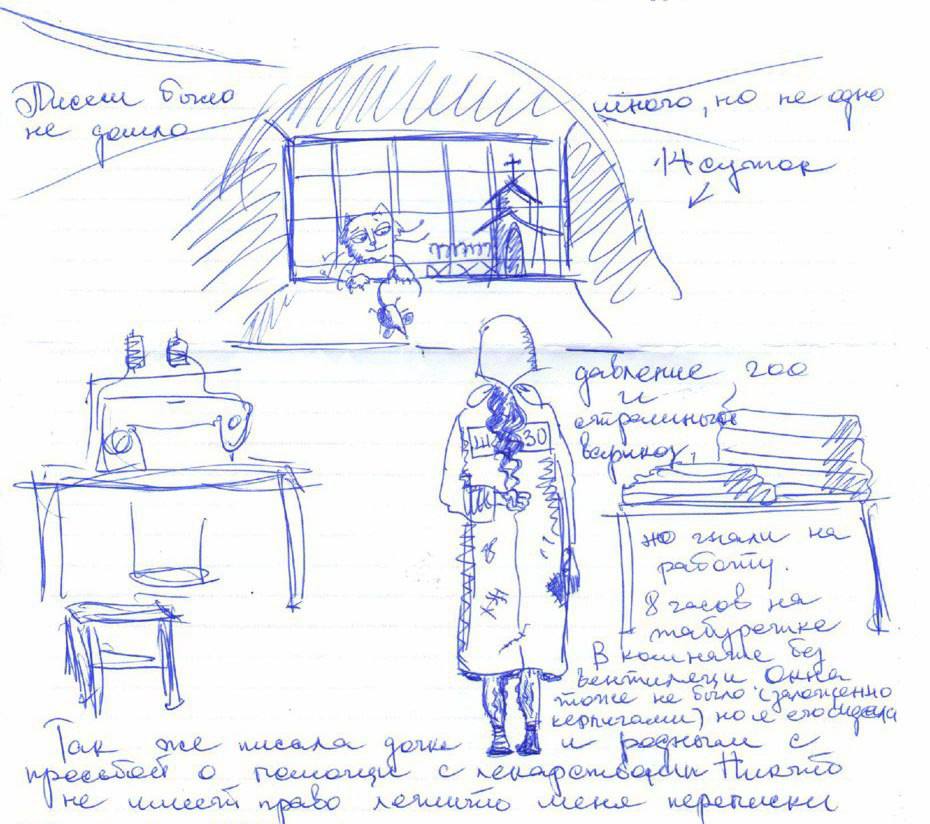 Писем было
много, но не одно
не дошло
14 суток
давление 200
и
варикоз,
Ш ЗО
но гнали на
работу.
8 часов на
табуретке
В комнате без
вентиляци Окна
тоже не было (заложенно
керпичами) но я его видела
Так же писала дочке и родным с
просьбой о помощи с лекарствами Никто
не имеет право лешить меня переписки